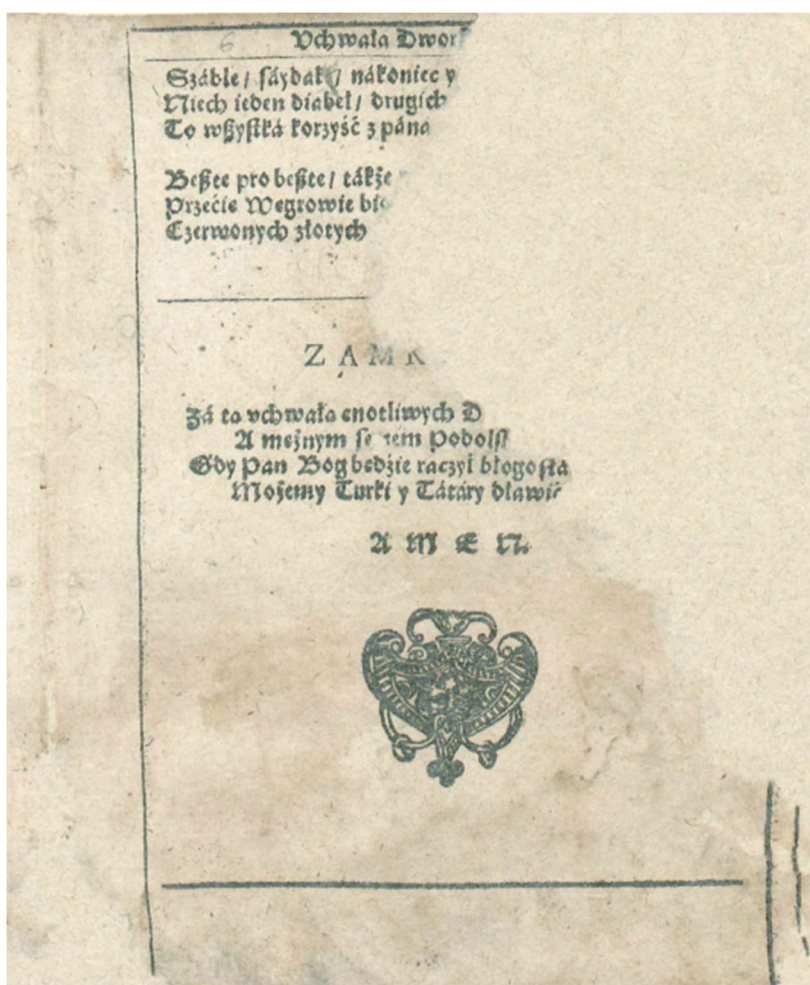 6 Vchwała Dwor
Száble / sáydak / nákoniec y
Niech ieden diabeł / drugich
To wßystká korzyść z páná
Beßte pro beßte / tákże
Przećie Węgrowie
Czerwonych złotych
ZAM
Zá tą vchwałą cnotliwych D
A mężnym Podols
Gdy Pan Bog będzie raczył błogosła
Możemy Turki y Tátáry dławić
AMEN.